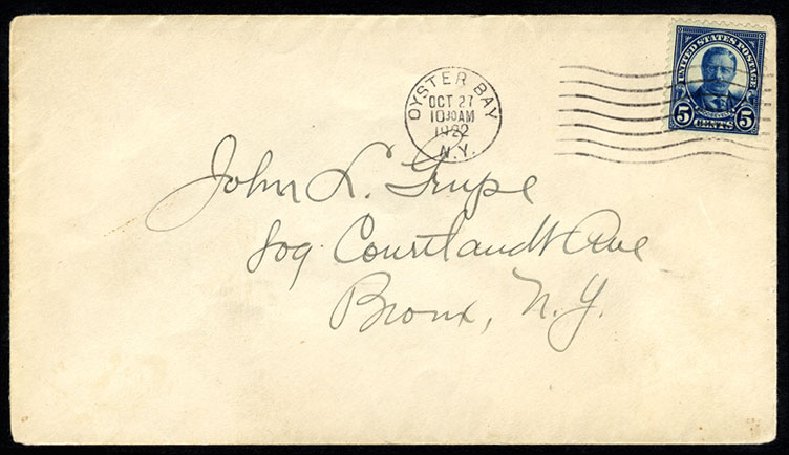 UNITED STATES POSTAGE
ROOSEVELT
5 CENTS 5
OYSTER BAY
OCT 27
10 30 AM
1922
N.Y.
John L. Grupe
809 Courtlandt Ave
Bronx, N.Y.